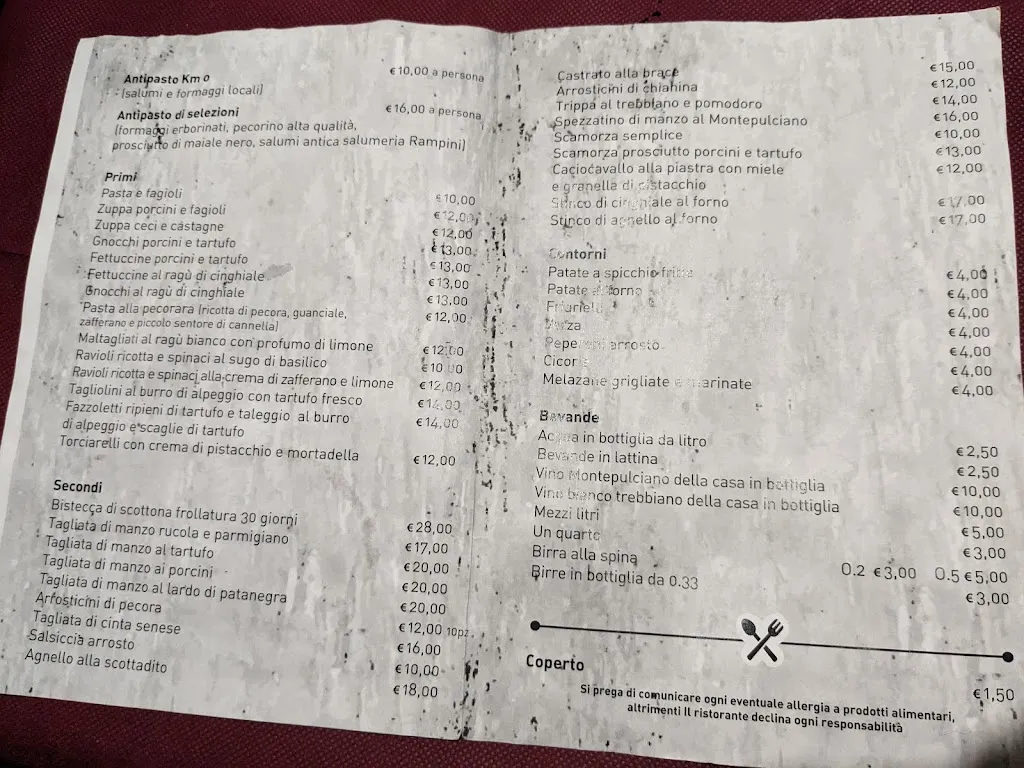 Antipasto Km 0 €10,00 a persona
(salumi e formaggi locali)
Antipasto di selezioni €16,00 a persona
(formaggi erborinati, pecorino alta qualità,
prosciutto di maiale nero, salumi antica salumeria Rampini)
Primi
Pasta e fagioli €10,00
Zuppa porcini e fagioli €12,00
Zuppa ceci e castagne €12,00
Gnocchi porcini e tartufo €13,00
Fettuccine porcini e tartufo €13,00
Fettuccine al ragù di cinghiale €13,00
Gnocchi al ragù di cinghiale €13,00
Pasta alla pecorara (ricotta di pecora, guanciale, €12,00
zafferano e piccolo sentore di cannella)
Maltagliati al ragù bianco con profumo di limone €12,00
Ravioli ricotta e spinaci al sugo di basilico €10,00
Ravioli ricotta e spinaci alla crema di zafferano e limone €12,00
Tagliolini al burro di alpeggio con tartufo fresco €14,00
Fazzoletti ripieni di tartufo e taleggio al burro €14,00
di alpeggio e scaglie di tartufo
Torciarelli con crema di pistacchio e mortadella €12,00
Secondi
Bistecca di scottona frollatura 30 giorni €28,00
Tagliata di manzo rucola e parmigiano €17,00
Tagliata di manzo al tartufo €20,00
Tagliata di manzo ai porcini €20,00
Tagliata di manzo al lardo di patanegra €20,00
Arrosticini di pecora €12,00 10pz.
Tagliata di cinta senese €16,00
Salsiccia arrosto €10,00
Agnello alla scottadito €18,00
Castrato alla brace €15,00
Arrosticini di chianina €12,00
Trippa al trebbiano e pomodoro €14,00
Spezzatino di manzo al Montepulciano €16,00
Scamorza semplice €10,00
Scamorza prosciutto porcini e tartufo €13,00
Caciocavallo alla piastra con miele €12,00
e granella di pistacchio
Stinco di cinghiale al forno €17,00
Stinco di agnello al forno €17,00
Contorni
Patate a spicchio fritte €4,00
Patate al forno €4,00
€4,00
€4,00
Peperoni arrosto €4,00
Cicoria €4,00
Melazane grigliate e marinate €4,00
Bevande
Acqua in bottiglia da litro €2,50
Bevande in lattina €2,50
Vino Montepulciano della casa in bottiglia €10,00
Vino bianco trebbiano della casa in bottiglia €10,00
Mezzi litri €5,00
Un quarto €3,00
Birra alla spina 0.2 €3,00 0.5 €5,00
Birre in bottiglia da 0.33 €3,00
Coperto €1,50
Si prega di comunicare ogni eventuale allergia a prodotti alimentari,
altrimenti Il ristorante declina ogni responsabilità